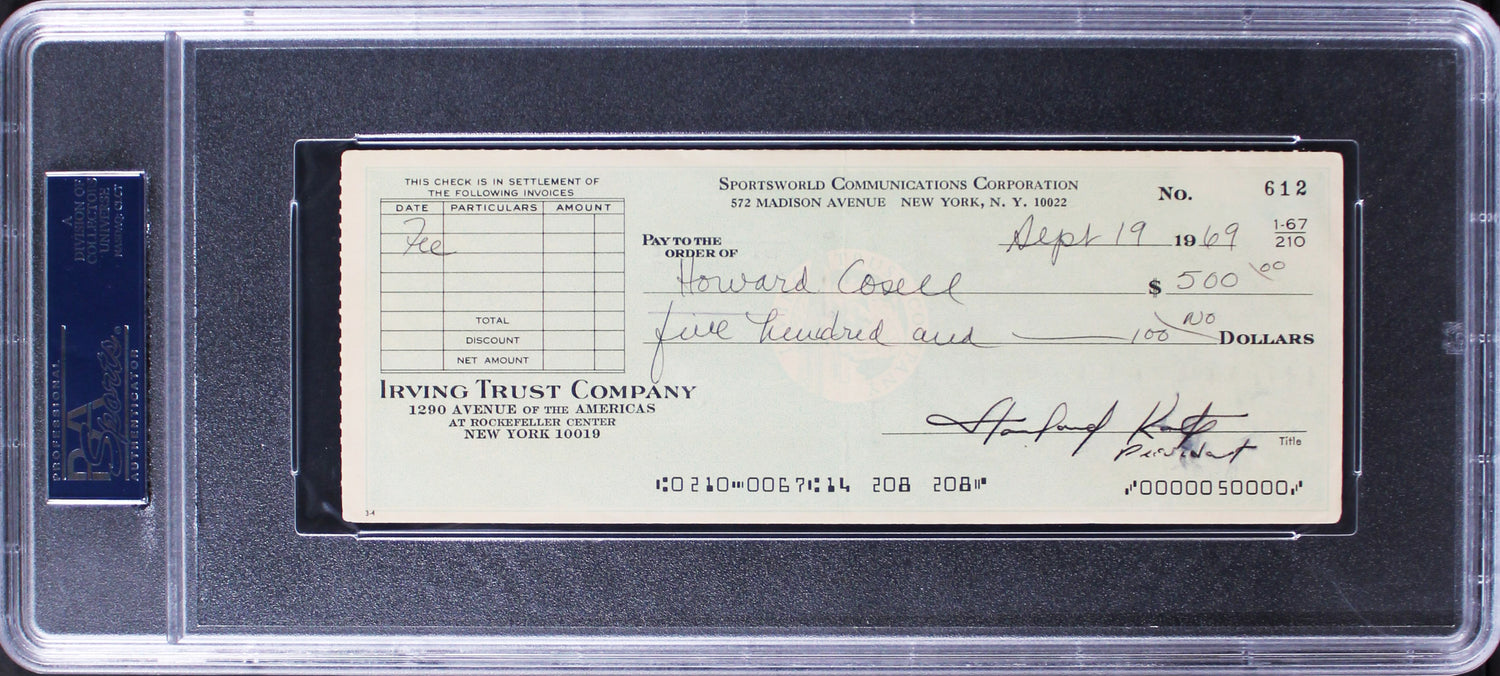 A
DIVISION OF
COLLECTORS
UNIVERSE
NASDAQ: CLCT
PROFESSIONAL
PSA
Sports®
AUTHENTICATOR
THIS CHECK IS IN SETTLEMENT OF
THE FOLLOWING INVOICES
DATE PARTICULARS AMOUNT
Fee
TOTAL
DISCOUNT
NET AMOUNT
IRVING TRUST COMPANY
1290 AVENUE OF THE AMERICAS
AT ROCKEFELLER CENTER
NEW YORK 10019
3-4
SPORTSWORLD COMMUNICATIONS CORPORATION
572 MADISON AVENUE NEW YORK, N. Y. 10022
No. 612
Sept 19 1969
1-67
210
PAY TO THE
ORDER OF
Howard Cosell $ 500 00
five hundred and No/100 DOLLARS
President
Title
⑆0210⑉0067⑆14 208 208⑈ ⑇0000050000⑇